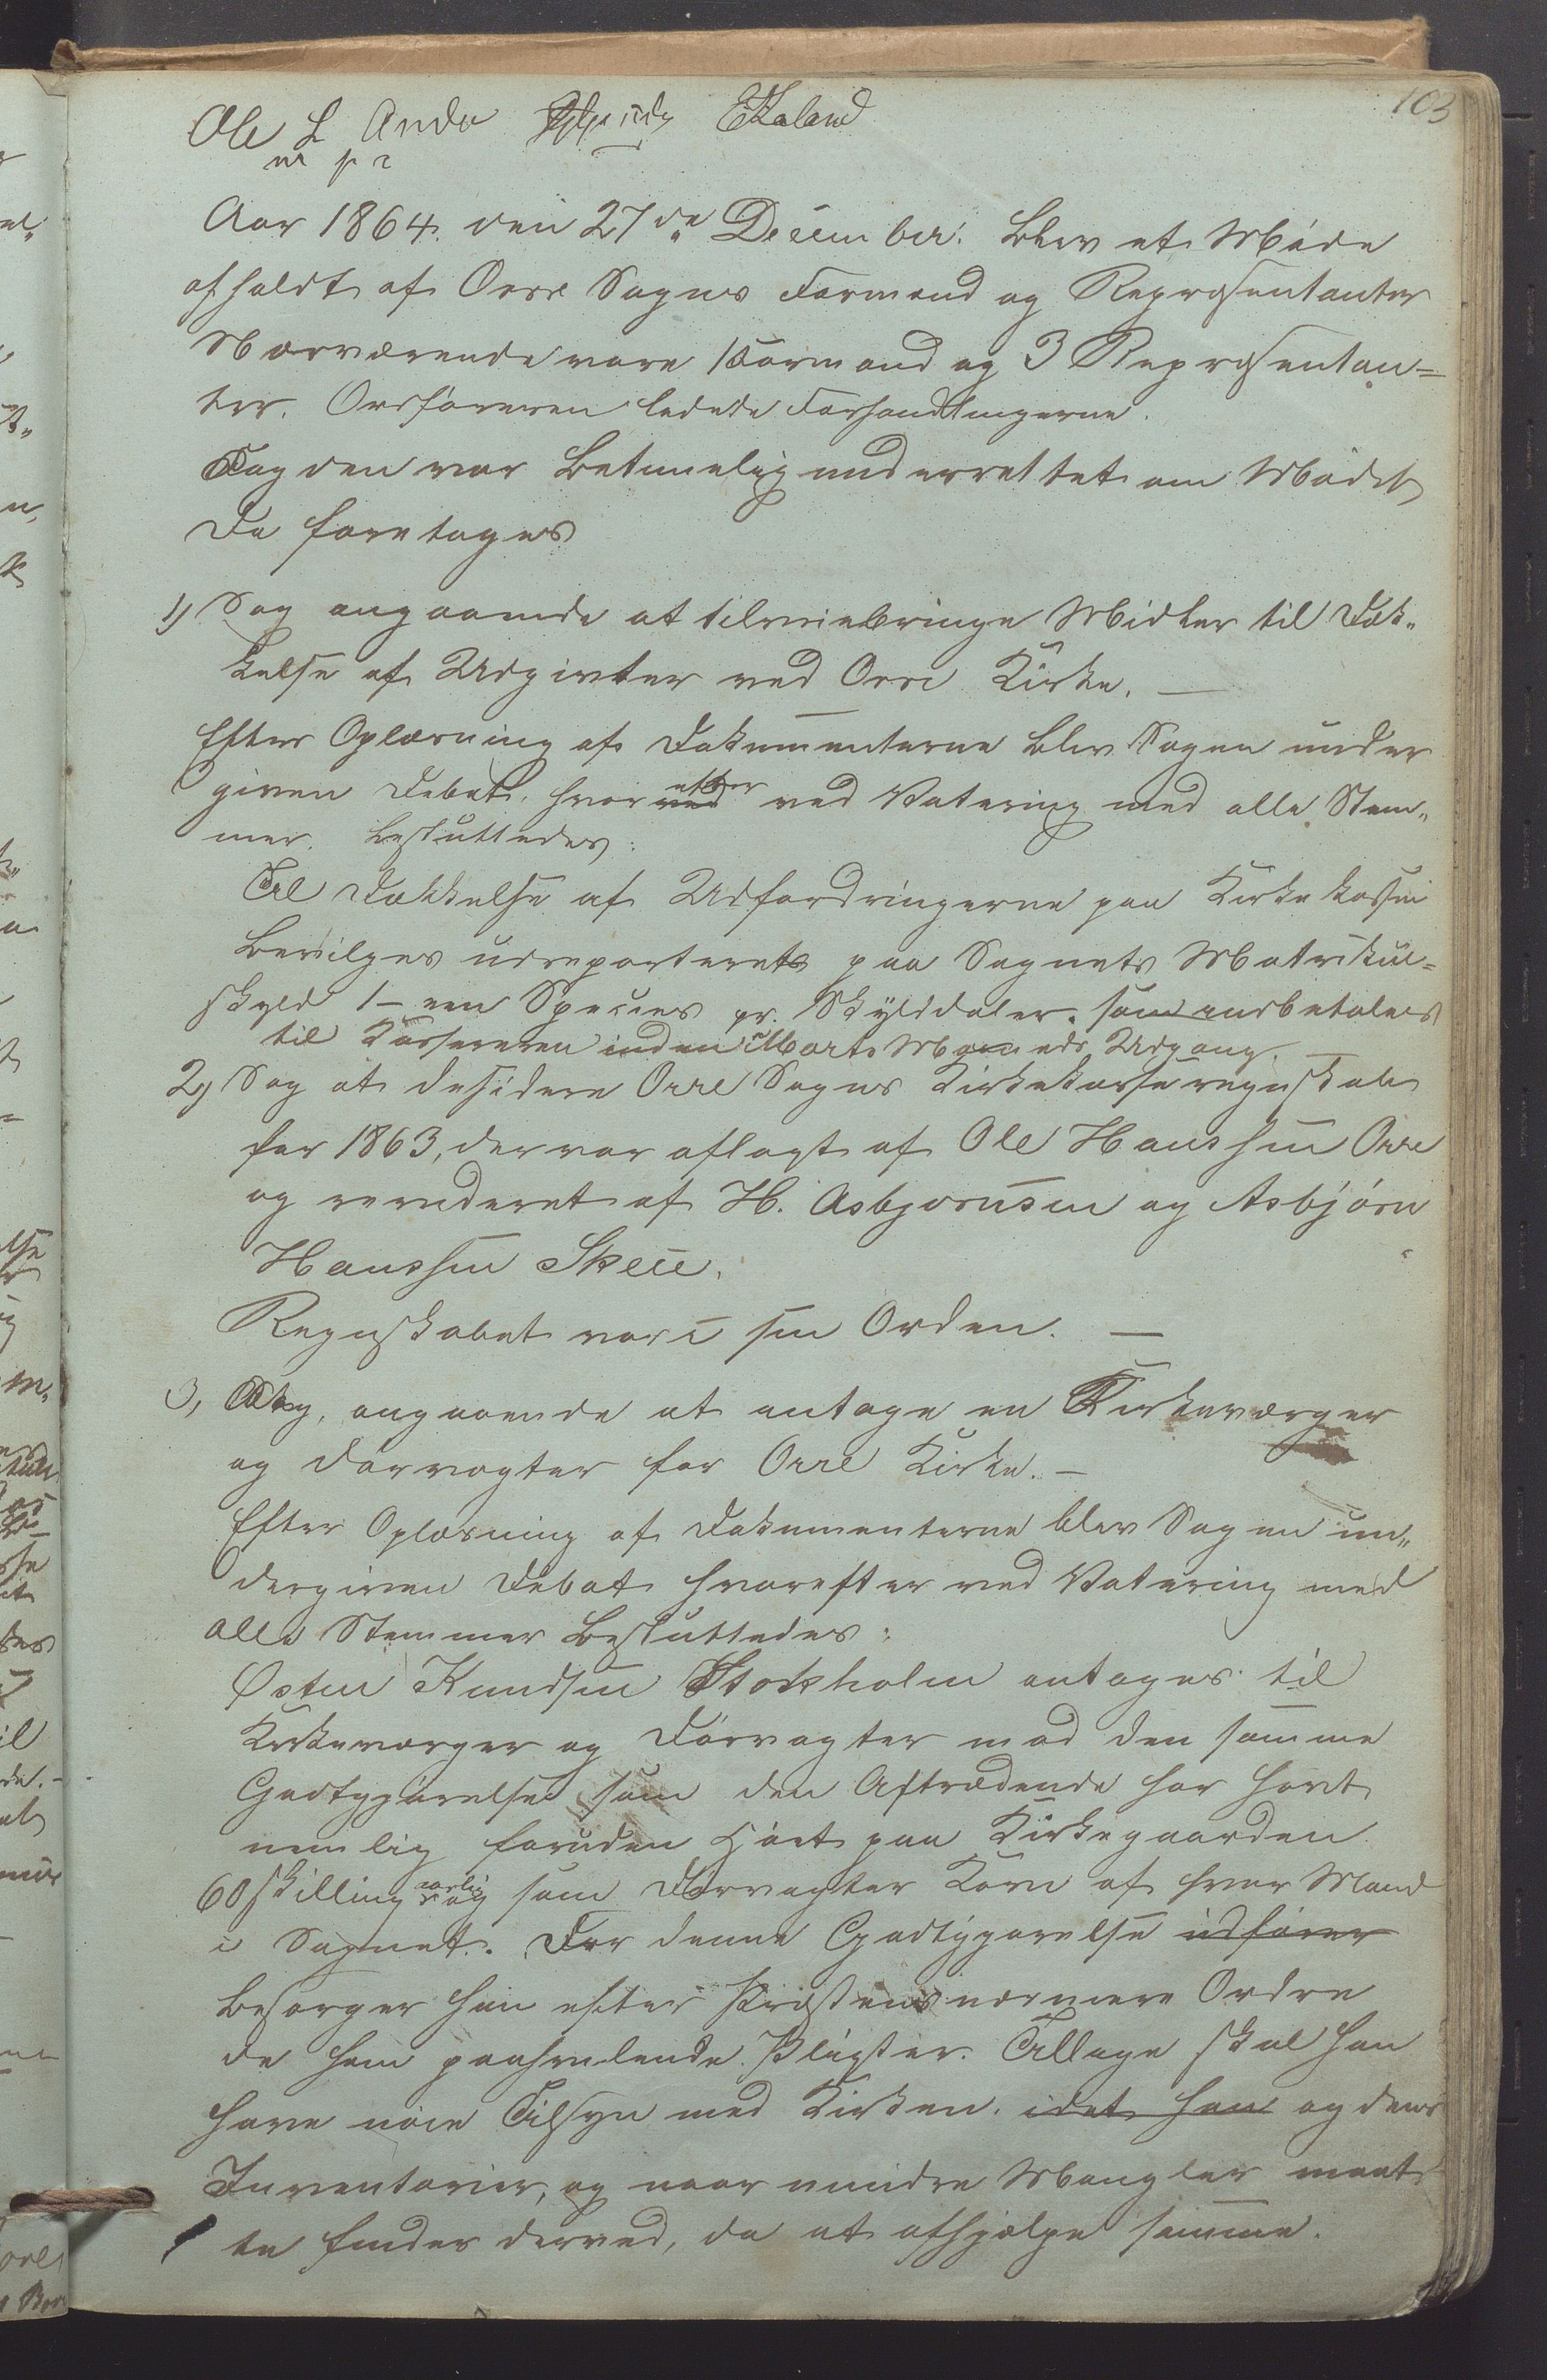 103
Ole L Anda EKaland
m p r
Aar 1864. den 27de December. blev et Möde
afholdt af Orre Sogns Formænd og Repræsentanter
Nærværende vare 1 Formand og 3 Repræsentan=
ter. Ordföreren ledede Forhandlingerne.
Fogden var betimelig underrettet om Mödet
Da foretages
1) Sag angaaende at tilveiebringe Midler til Dæk„
kelse af Udgivter ved Orre Kirke. —
Efter Oplæsning af Dokumenterne blev Sagen under
given Debat, hvor ved efter ved Votering med alle Stem„
mer. besluttedes:
Til Dækkelse af Udfordringerne paa Kirkekassen
bevilges udreparteret paa Sognets Matrikul=
skyld 1 — een Species pr. Skylddaler. som indbetales
til Kassereren inden Marts Maaneds Udgang. —
2) Sag at desidere Orre Sogns Kirkekasseregnskab
for 1863, der var aflagt af Ole Hanssen Orre
og revideret af H. Asbjornsen og Asbjörn
Hanssen Skeie.
Regnskabet var i sin Orden. —
3, Sag, angaaende at antage en Kirkeværger
og Dörvogter for Orre Kirke. —
Efter Oplæsning af Dokumenterne blev Sagen un„
dergiven Debat hvorefter ved Votering med
alle Stemmer besluttedes:
Østen Knudsen Stokholm antages til
Kirkeværger og Dörvogter mod den samme
Godtgjörelse som den Aftrædende har havt
nemlig foruden Höet paa Kirkegaarden
60 skilling aarlig og som Dörvogter Korn af hver Mand
i Sognet. For denne Godtgjörelse udförer
besörger han efter Præstens nærmere Ordre
de ham paahvilende Pligter. Tillige skal han
have nöie Tilsyn med Kirken. idet han og dens
Inventarier, og naar mindre Mangler maat
te findes derved, da at afhjælpe samme.